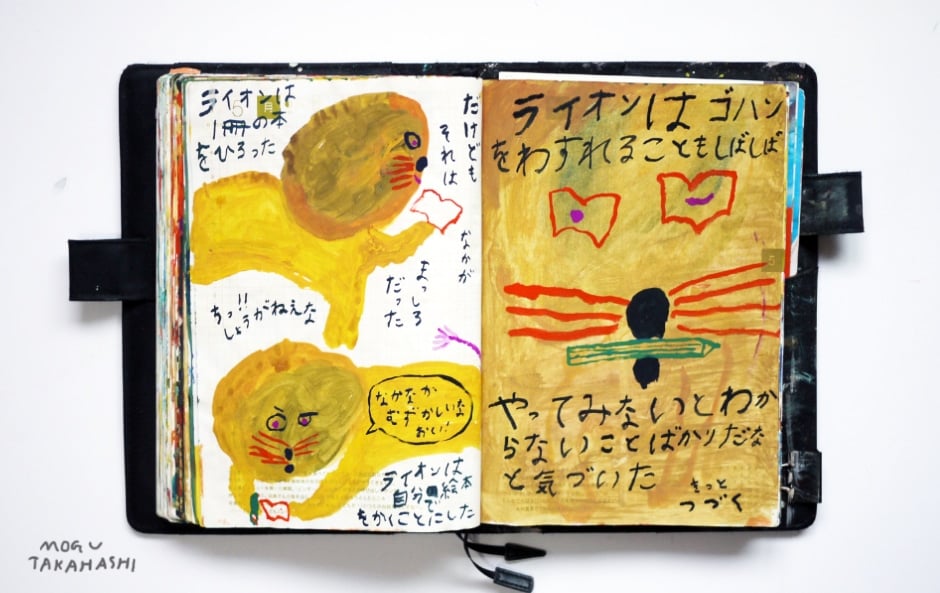 ライオンは
1冊の本
をひろった
だけども
それは
なかが
まっしろ
だった
ちっ!!
しょうがねえな
なかなか
むずかしいなお
おい!
ライオンは
自分で絵本
をかくことにした
ライオンは ゴハン
をわすれることもしばしば
5
やってみないとわか
らないことばかりだな
と気づいた
きっと
つづく
MOGU
TAKAHASHI